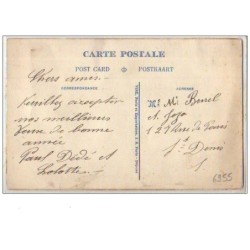 CARTE POSTALE
POST CARD POSTKAART
CORRESPONDANCE
ADRESSE
Chers amis
Veuillez accepter
nos meilleurs
voeux de bonne
année
Paul Dédé et
Lolotte
Mr Mme Burel
et Jojo
129 Rue de Paris
St Denis
6355